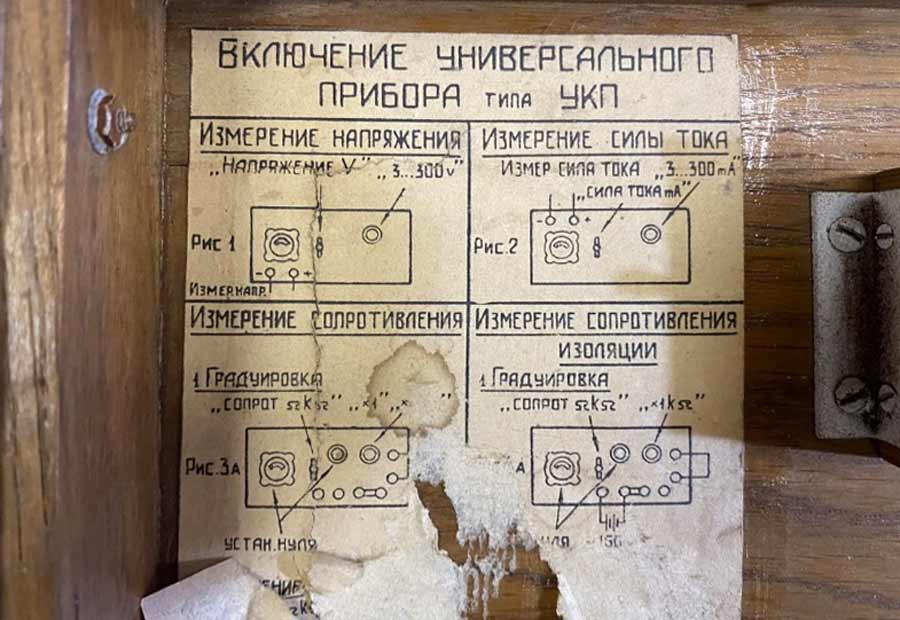 ВКЛЮЧЕНИЕ УНИВЕРСАЛЬНОГО
ПРИБОРА ТИПА УКП
ИЗМЕРЕНИЕ НАПРЯЖЕНИЯ
„НАПРЯЖЕНИЕ V" „3...300V"
Рис 1
- +
ИЗМЕР.НАПР.
ИЗМЕРЕНИЕ СИЛЫ ТОКА
ИЗМЕР СИЛА ТОКА „3...300mA"
„СИЛА ТОКА mA"
- +
Рис.2
ИЗМЕРЕНИЕ СОПРОТИВЛЕНИЯ
1 ГРАДУИРОВКА
„СОПРОТ ΩkΩ" „×1" „×
Рис.3А
УСТАН.НУЛЯ
ИЗМЕРЕНИЕ СОПРОТИВЛЕНИЯ
ИЗОЛЯЦИИ
1 ГРАДУИРОВКА
„СОПРОТ ΩkΩ" „×1kΩ"
А